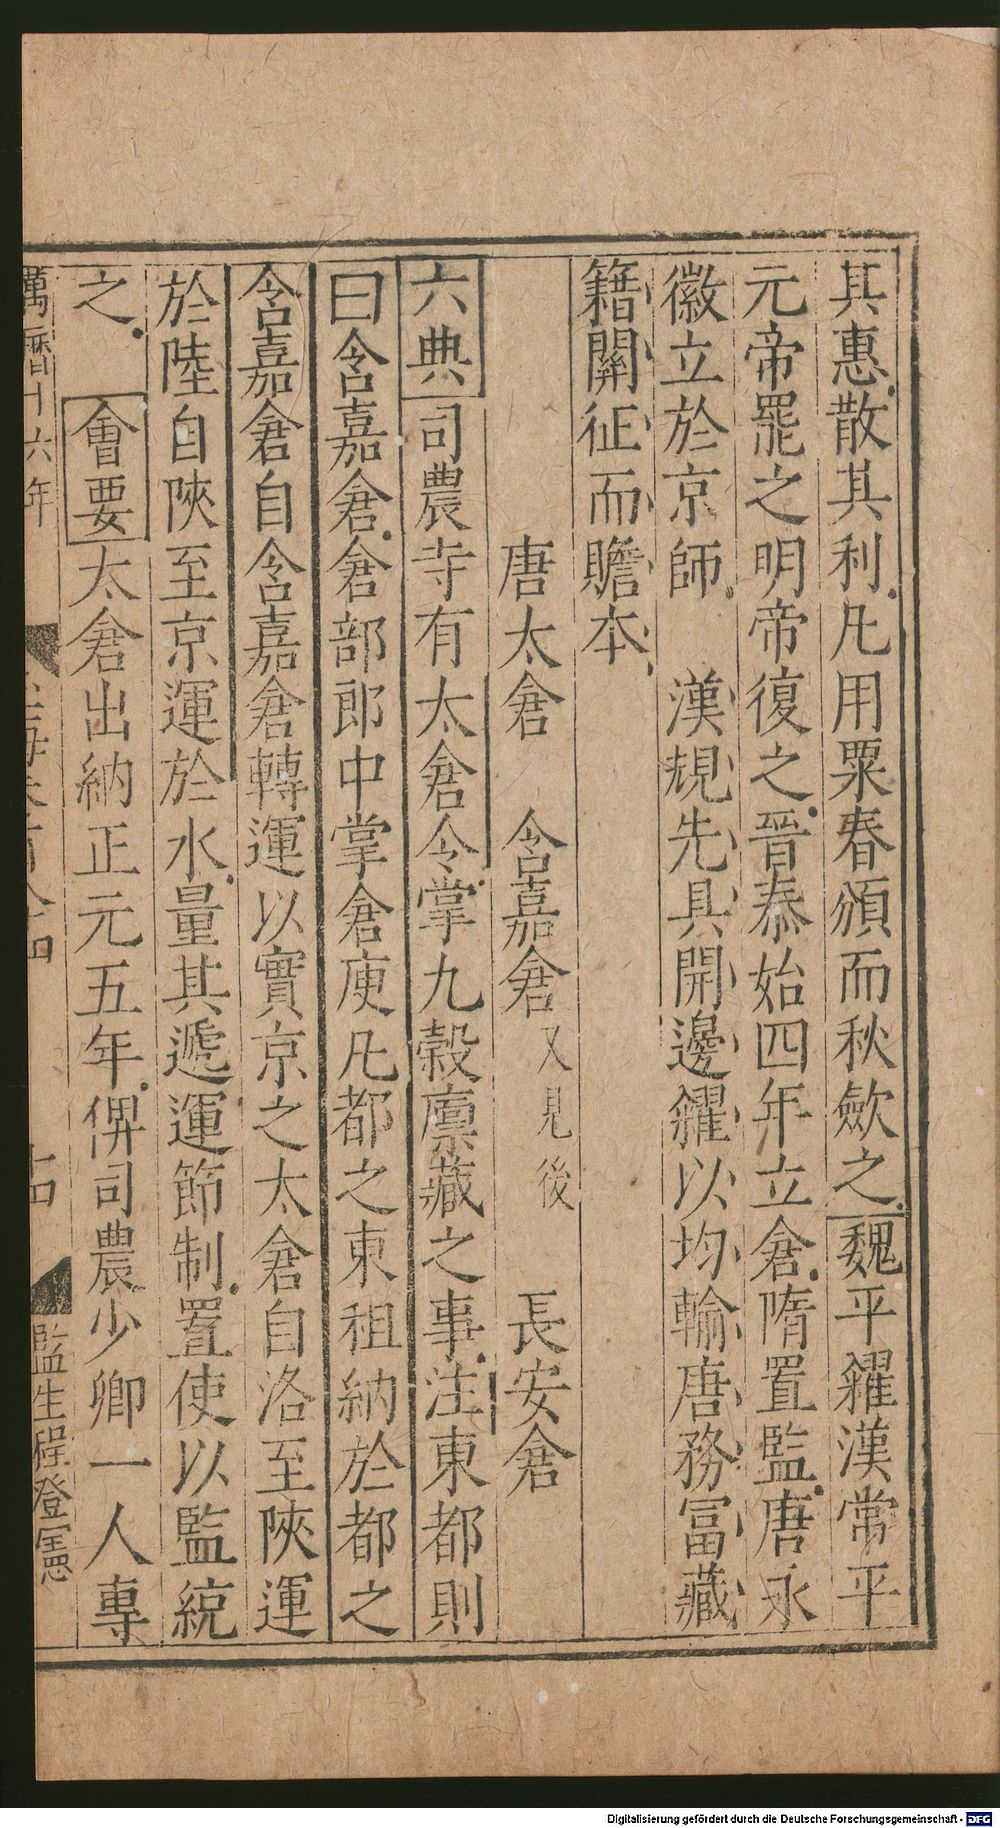 其惠散其利凡用粟春頒而秋歛之魏平糴漢常平
元帝罷之明帝復之晉泰始四年立倉隋置監唐永
徽立於京師　漢規先具開邊糴以均輸唐務富藏
籍關征而贍本
唐太倉　含嘉倉又見後　長安倉
六典司農寺有太倉令掌九穀廩藏之事注東都則
曰含嘉倉倉部郎中掌倉庾凡都之東租納於都之
含嘉倉自含嘉倉轉運以實京之太倉自洛至陝運
於陸自陝至京運於水量其遞運節制置使以監統
之　會要太倉出納正元五年俾司農少卿一人專
萬曆十六年　玉海卷百八十四　十四　監生程登憲
Digitalisierung gefördert durch die Deutsche Forschungsgemeinschaft - DFG